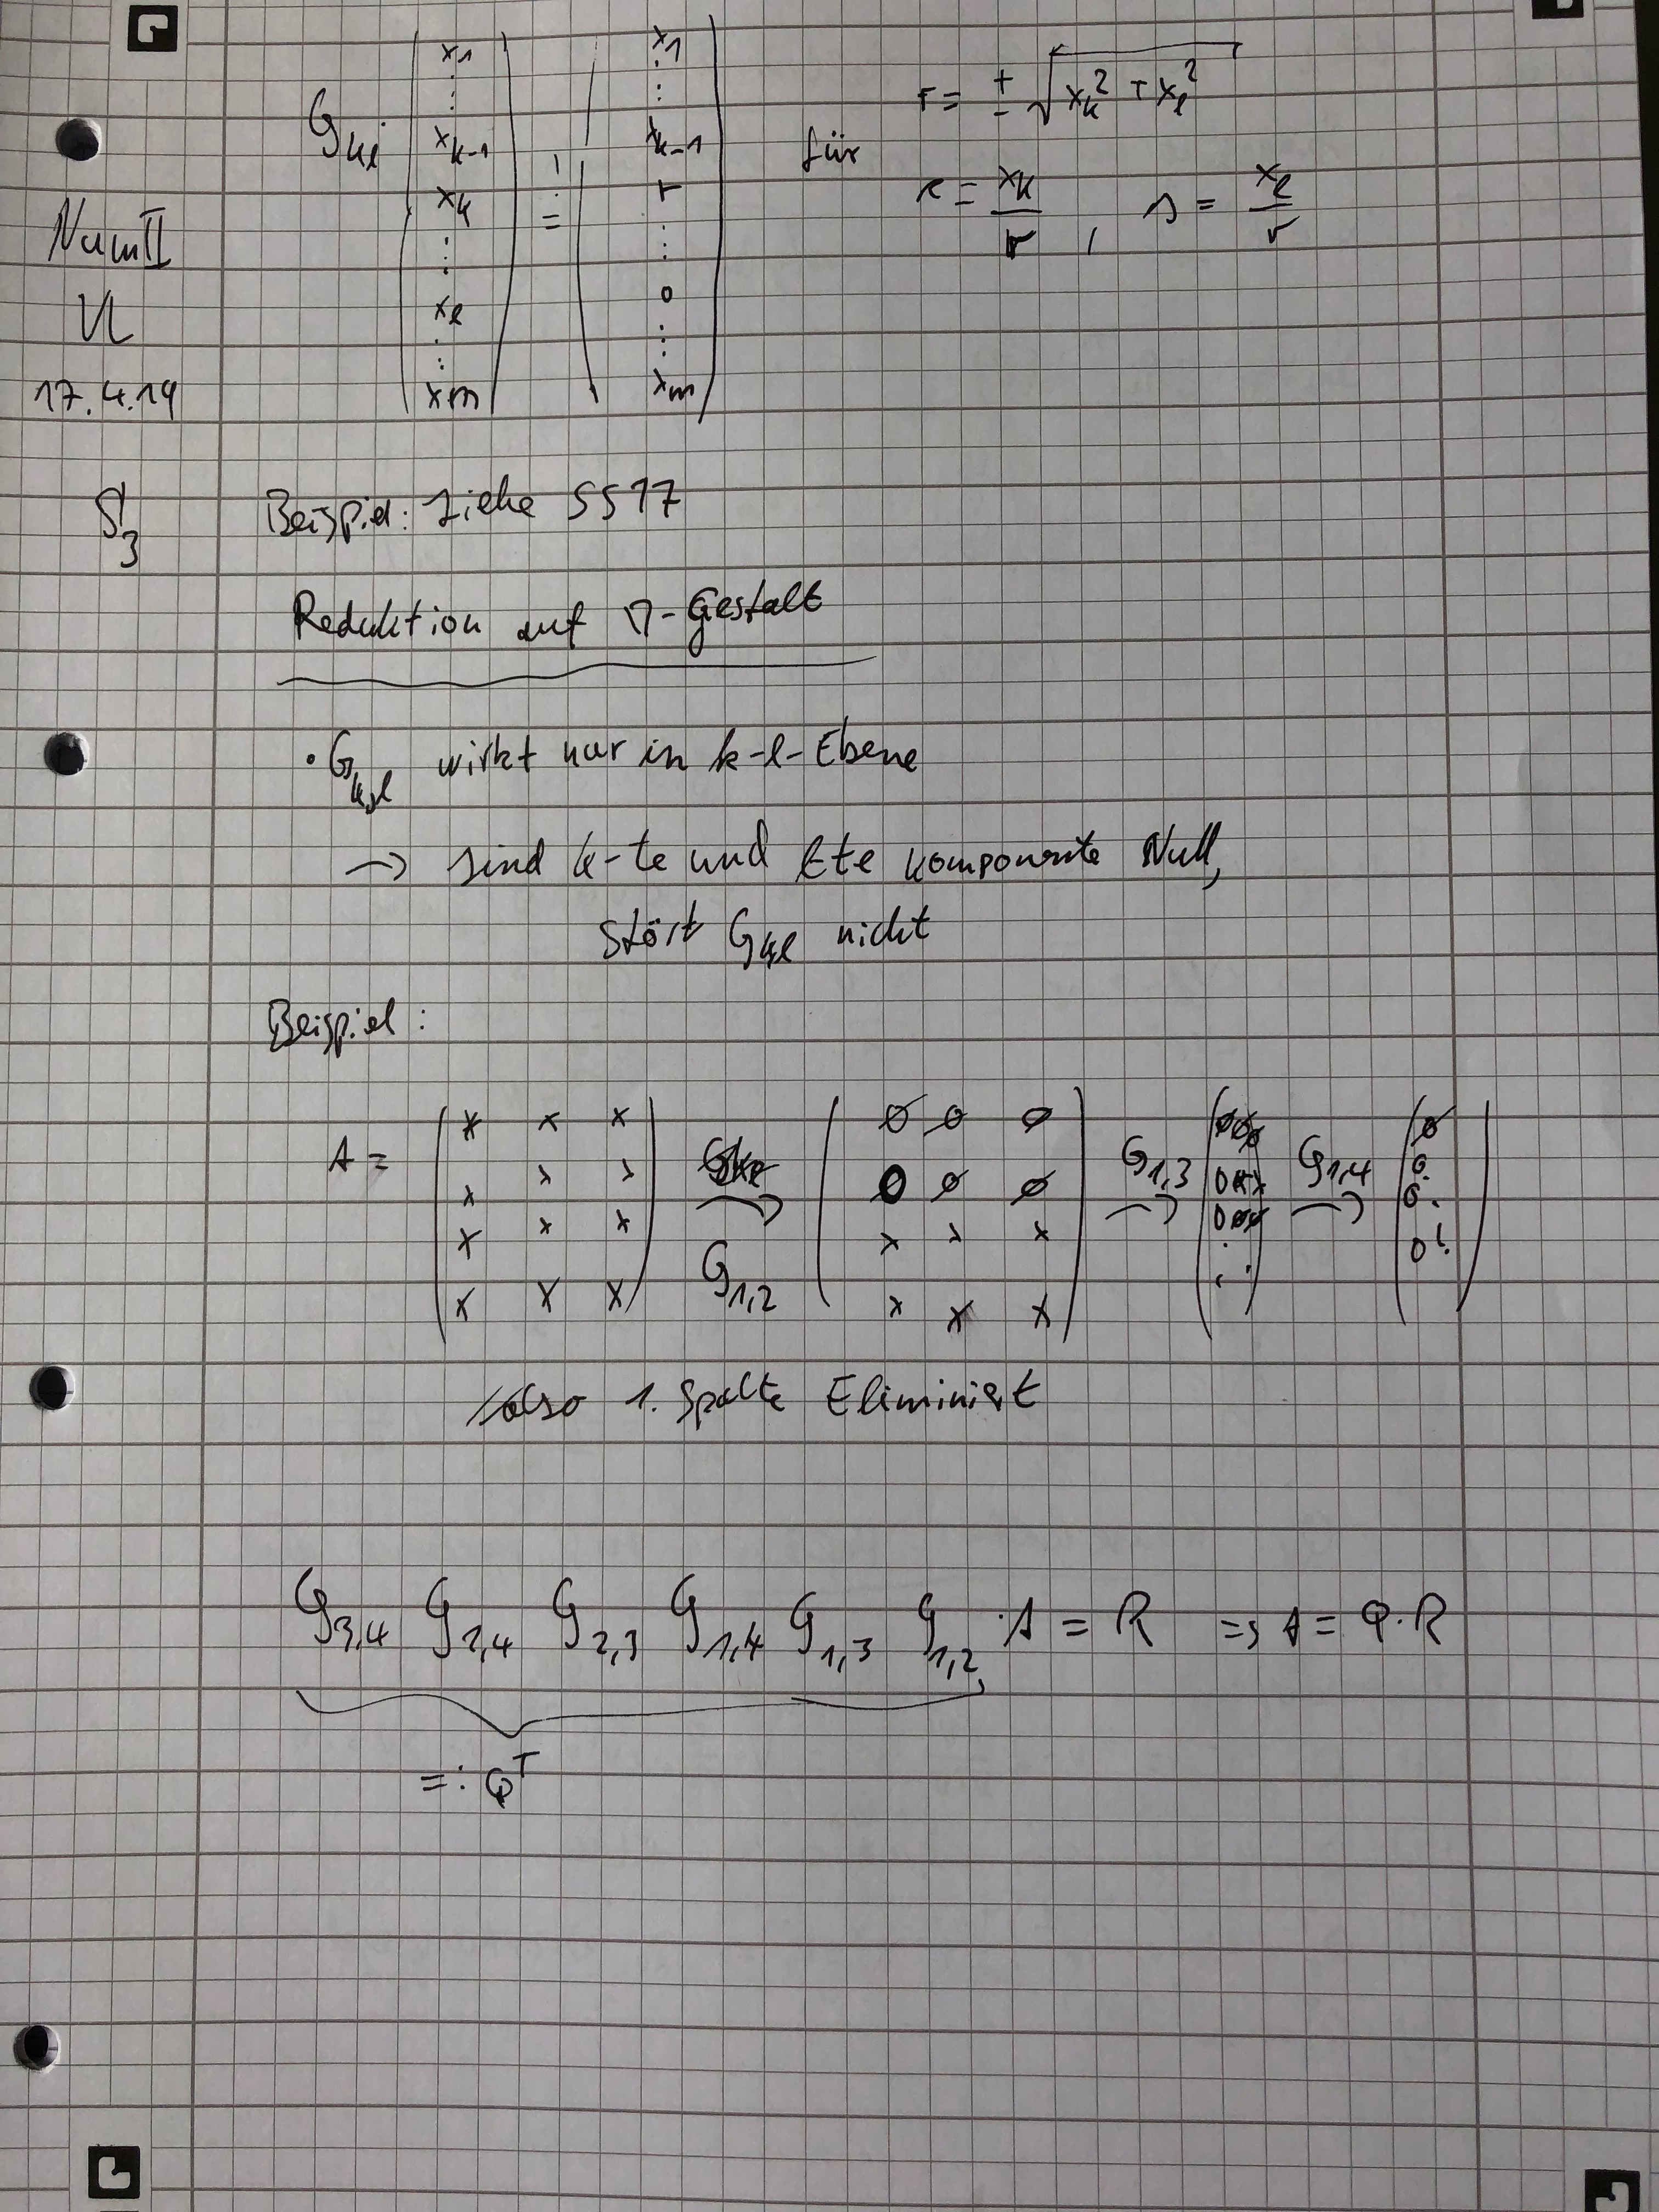 G_kl (x_1 ⋮ x_{k-1} x_k ⋮ x_l ⋮ x_m) =! (x_1 ⋮ x_{k-1} r ⋮ 0 ⋮ x_m) für r = ± √(x_k² + x_l²)
c = x_k / r , s = x_l / r
Num II
VL
17.4.19
S3
Beispiel: siehe SS17
Reduktion auf ▽-Gestalt
• G_{k,l} wirkt nur in k-l-Ebene
→ sind k-te und lte komponente Null,
stört G_kl nicht
Beispiel:
A = (x x x; x x x; x x x; x x x) → G_{1,2} (∅ ∅ ∅; 0 ∅ ∅; x x x; x x x) G_{1,3} → G_{1,4} →
also 1. Spalte Eliminiert
G_{3,4} G_{2,4} G_{2,3} G_{1,4} G_{1,3} G_{1,2} · A = R ⇒ A = Q · R
=: Q^T